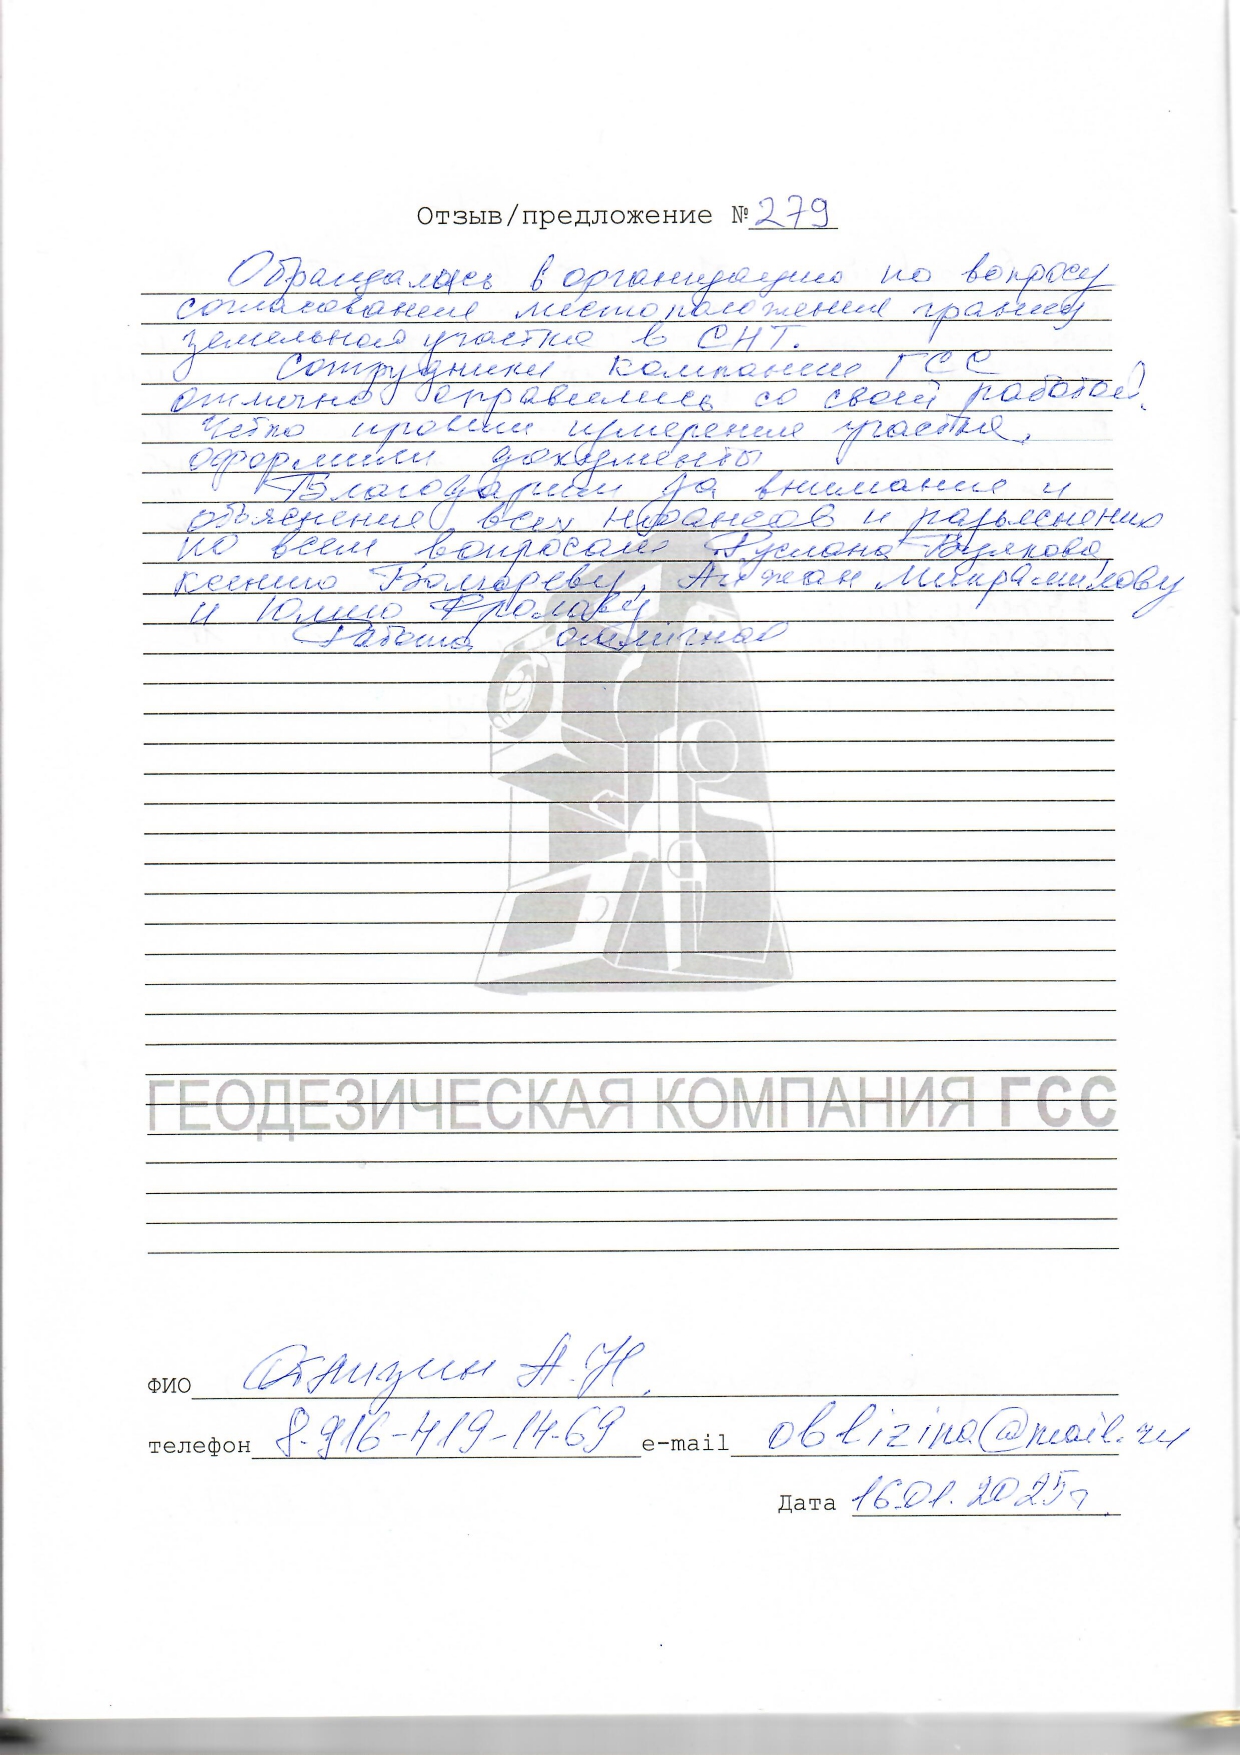 Отзыв/предложение № 279
Обращалась в организацию по вопросу
согласования местоположения границ
земельного участка в СНТ.
Сотрудники компании ГСС
отлично справились со своей работой.
Четко провели измерения участка,
оформили документы
Благодарим за внимание и
объяснение всех нюансов и разъяснения
по всем вопросам Руслана
Ксению Болгареву, Айжан
и Юлию Фролову
Работа отличная
ГЕОДЕЗИЧЕСКАЯ КОМПАНИЯ ГСС
ФИО А.Н.
телефон 8-916-419-14-69 e-mail oblizina@mail.ru
Дата 16.01.2025г